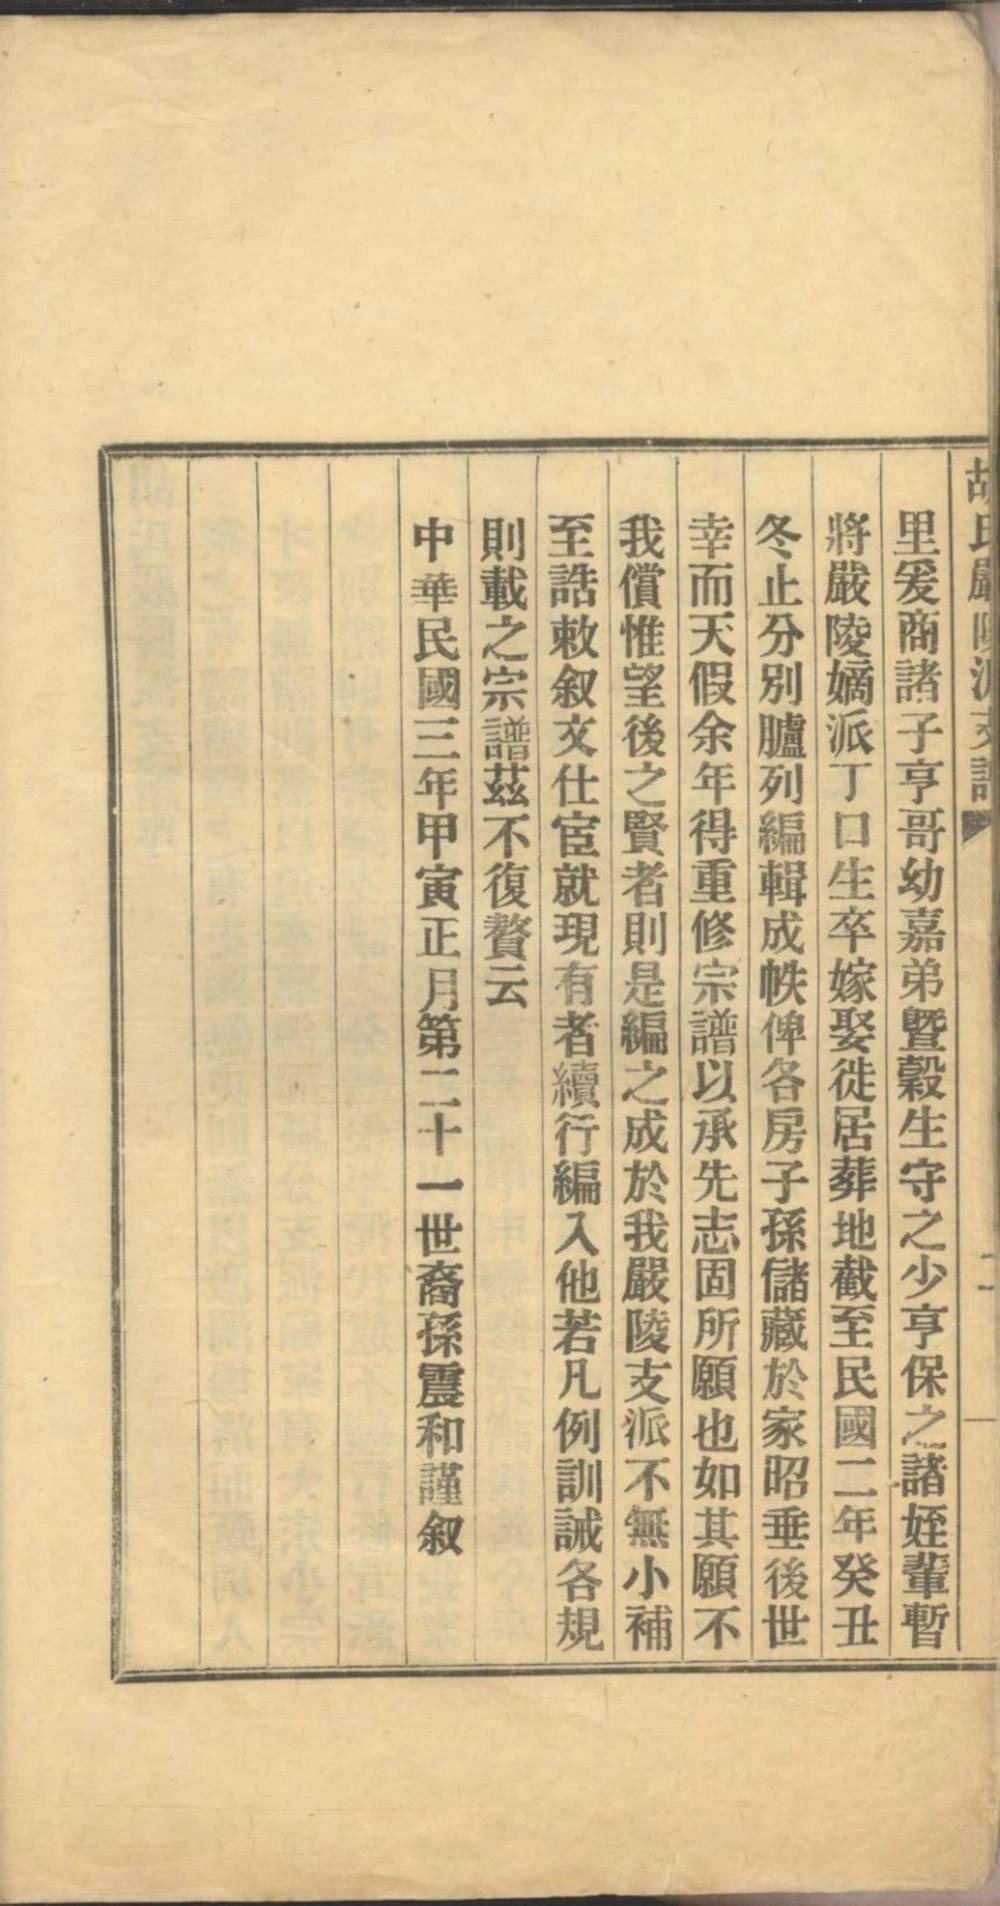 胡氏嚴陵派支譜
里爰商諸子亨哥幼嘉弟暨穀生守之少亨保之諸姪輩暫
將嚴陵嫡派丁口生卒嫁娶徙居葬地截至民國二年癸丑
冬止分別臚列編輯成帙俾各房子孫儲藏於家昭垂後世
幸而天假余年得重修宗譜以承先志固所願也如其願不
我償惟望後之賢者則是編之成於我嚴陵支派不無小補
至誥敕叙文仕宦就現有者續行編入他若凡例訓誡各規
則載之宗譜茲不復贅云
中華民國三年甲寅正月第二十一世裔孫震和謹叙